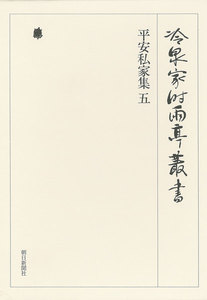 冷泉家時雨亭叢書
平安私家集 五
朝日新聞社